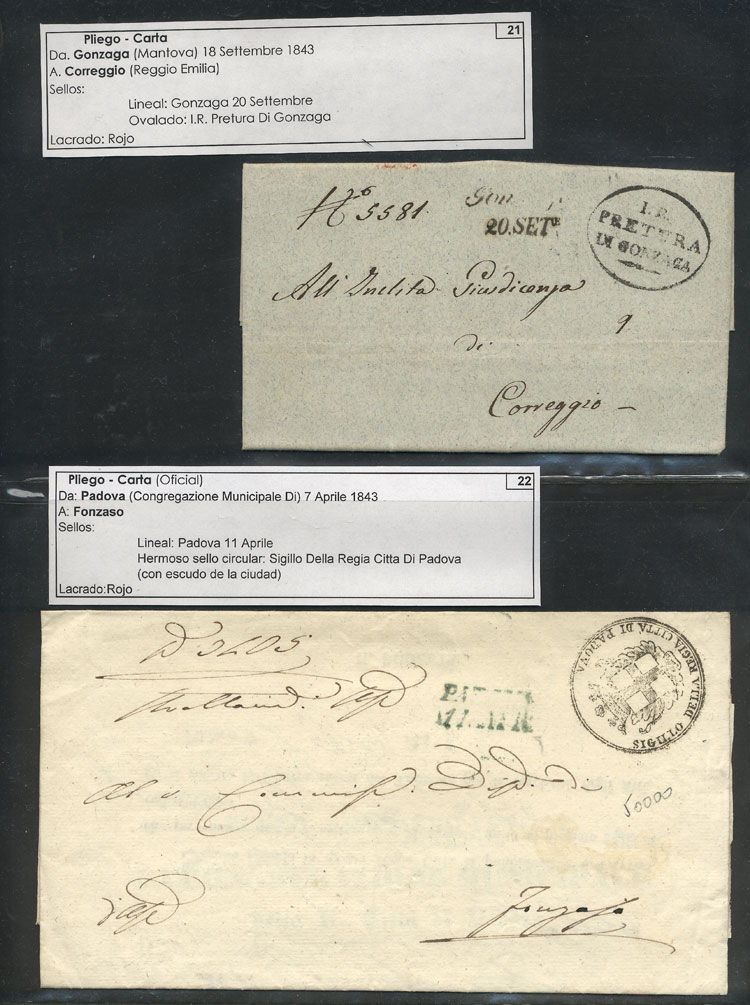 Pliego - Carta
21
Da. Gonzaga (Mantova) 18 Settembre 1843
A. Correggio (Reggio Emilia)
Sellos:
Lineal: Gonzaga 20 Settembre
Ovalado: I.R. Pretura Di Gonzaga
Lacrado: Rojo
5581
20.SET
I.R.
PRETURA
DI GONZAGA
All' Inclita Giusdicenza
9
di
Correggio
Pliego - Carta (Oficial)
22
Da: Padova (Congregazione Municipale Di) 7 Aprile 1843
A: Fonzaso
Sellos:
Lineal: Padova 11 Aprile
Hermoso sello circular: Sigillo Della Regia Citta Di Padova
(con escudo de la ciudad)
Lacrado:Rojo
SIGILLO DELLA REGIA CITTA DI PADOVA
50000
Fonzaso